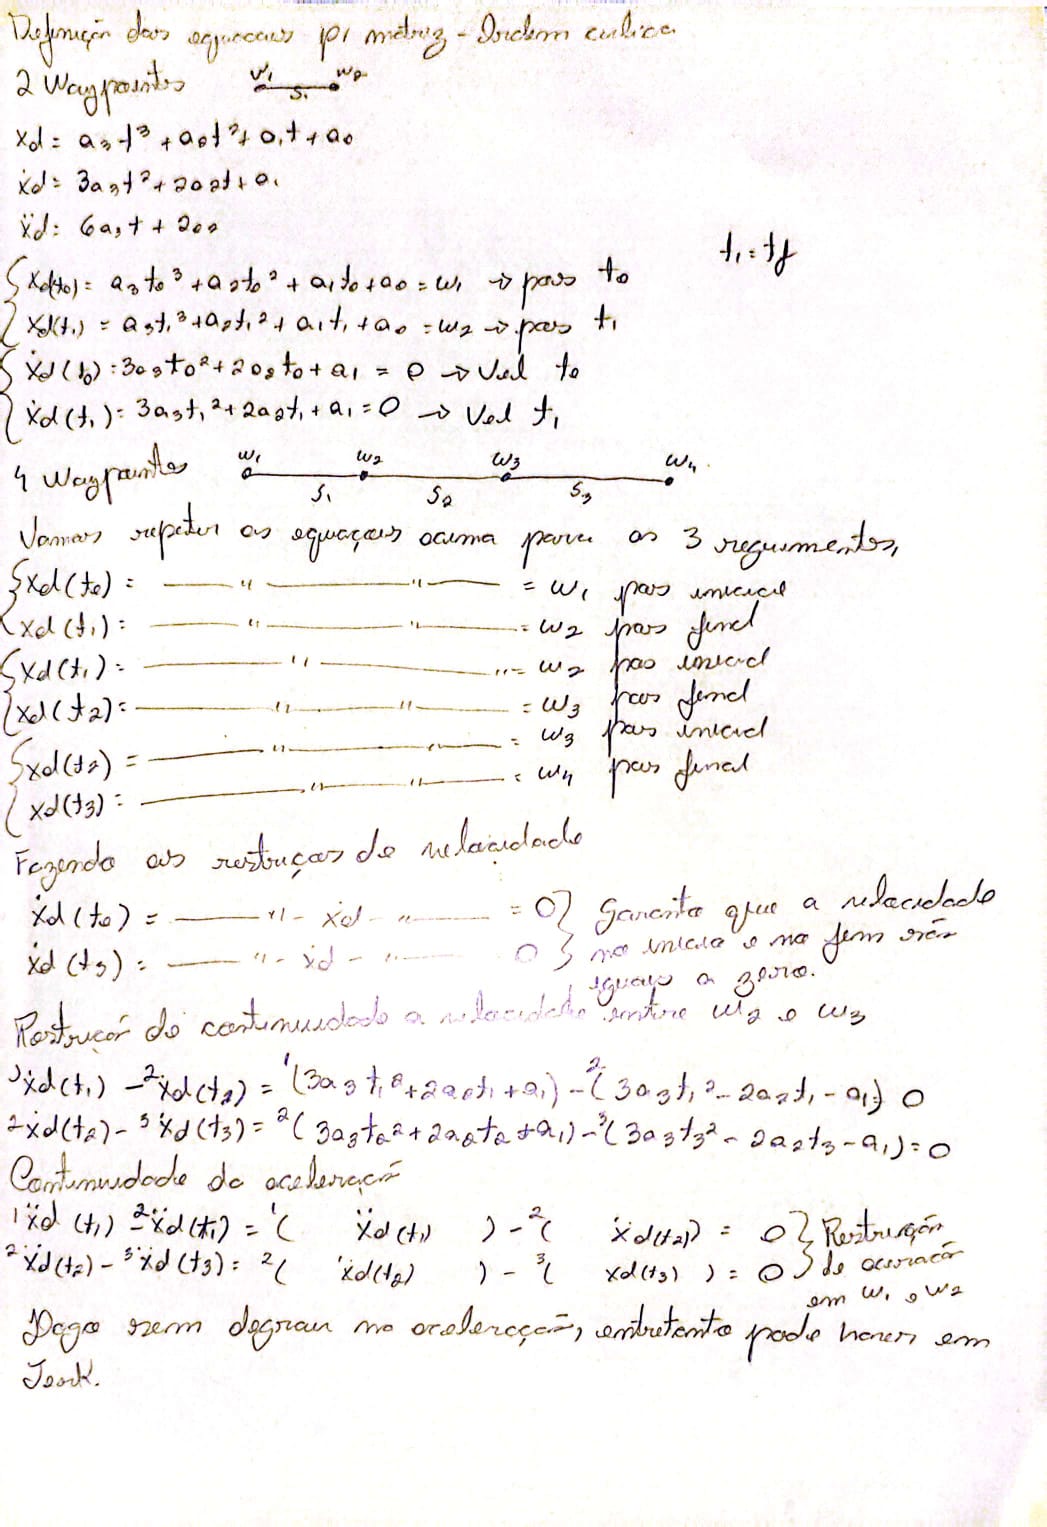 Definição das equações p/ matriz - Ordem cubica
2 Waypoints w₁ w₂
S₁
xd = a₃t³ + a₂t² + a₁t + a₀
ẋd = 3a₃t² + 2a₂t + a₁
ẍd = 6a₃t + 2a₂
t₁ = tf
xd(t₀) = a₃t₀³ + a₂t₀² + a₁t₀ + a₀ = w₁ → pos t₀
xd(t₁) = a₃t₁³ + a₂t₁² + a₁t₁ + a₀ = w₂ → pos t₁
ẋd(t₀) : 3a₃t₀² + 2a₂t₀ + a₁ = 0 → Vel t₀
ẋd(t₁) = 3a₃t₁² + 2a₂t₁ + a₁ = 0 → Vel t₁
4 Waypoints w₁ w₂ w₃ w₄
S₁ S₂ S₃
Vamos repetir as equações acima para os 3 seguimentos,
xd(t₀) = — " — " — = w₁ pos inicial
xd(t₁) = — " — " — = w₂ pos final
xd(t₁) = — " — " = w₂ pos inicial
xd(t₂) = — " — " — = w₃ pos final
xd(t₂) = — " — " — = w₃ pos inicial
xd(t₃) = — " — " — = w₄ pos final
Fazendo as restriças de velocidade
ẋd(t₀) = — " - ẋd - " — = 0 } Garanto que a velocidade
ẋd(t₃) = — " - ẋd - " — 0 } no inicio e no fim são
iguais a zero.
Restriçõ de continuidade a velocidade entre w₂ e w₃
¹ẋd(t₁) - ²ẋd(t₂) = ¹(3a₃t₁² + 2a₂t₁ + a₁) - ²(3a₃t₁² - 2a₂t₁ - a₁) = 0
²ẋd(t₂) - ³ẋd(t₃) = ²(3a₃t₂² + 2a₂t₂ + a₁) - ³(3a₃t₃² - 2a₂t₃ - a₁) = 0
Continuidade da aceleração
¹ẍd(t₁) - ²ẍd(t₁) = ¹( ẍd(t₁) ) - ²( ẍd(t₂) ) = 0 } Restrinção
²ẍd(t₂) - ³ẍd(t₃) = ²( ẍd(t₂) ) - ³( xd(t₃) ) = 0 } de
em w₁ e w₂
sem degrau na aceleração, entretanto pode haver em
Jerk.